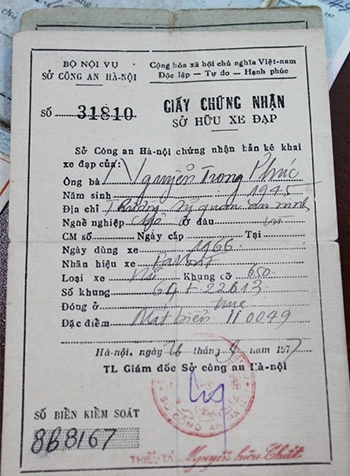 BỘ NỘI VỤ
SỞ CÔNG AN HÀ-NỘI
Cộng hòa xã hội chủ nghĩa Việt-nam
Độc lập - Tự do - Hạnh phúc
SỐ 31810
GIẤY CHỨNG NHẬN
SỞ HỮU XE ĐẠP
Sở Công an Hà-nội chứng nhận bản kê khai
xe đạp của:
Ông bà Nguyễn Trọng Phúc
Năm sinh 1945
Địa chỉ Trường sỹ quan an ninh
Nghề nghiệp Ở đâu
CM số Ngày cấp Tại
Ngày dùng xe 1966
Nhãn hiệu xe
Loại xe Nữ Khung cỡ 650
Số khung 22613
Đóng ở
Đặc điểm Mất biển 110049
Hà-nội, ngày 26 tháng năm 1977
TL Giám đốc Sở công an Hà-nội
SỐ BIỂN KIỂM SOÁT
868167
SỞ CÔNG AN
THIẾU TÁ Nguyễn hữu Thất